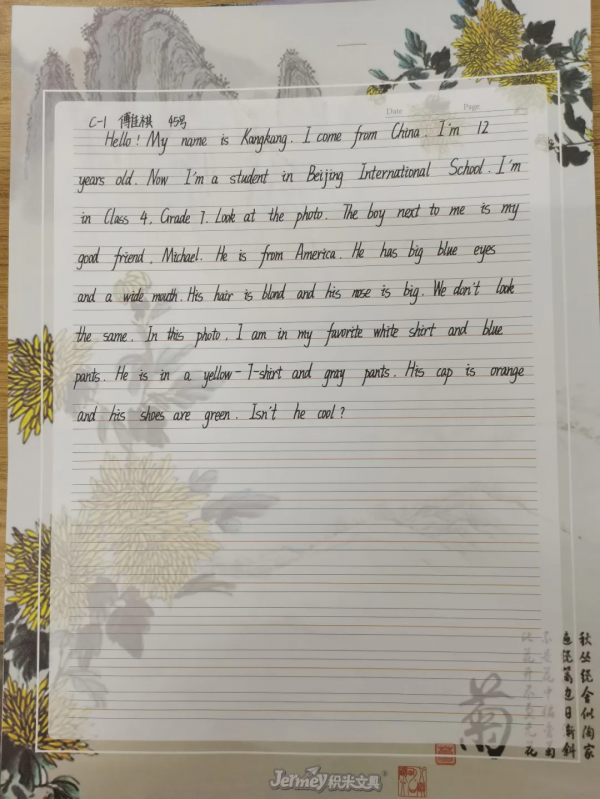 Date Page
C-1 傅佳祺 45号
Hello! My name is Kangkang. I come from China. I'm 12
years old. Now I'm a student in Beijing International School. I'm
in Class 4, Grade 7. Look at the photo. The boy next to me is my
good friend, Michael. He is from America. He has big blue eyes
and a wide mouth. His hair is blond and his nose is big. We don't look
the same. In this photo, I am in my favorite white shirt and blue
pants. He is in a yellow-T-shirt and gray pants. His cap is orange
and his shoes are green. Isn't he cool?
秋丛绕舍似陶家
遍绕篱边日渐斜
不是花中偏爱菊
此花开尽更无花
菊
Jermey积米文具